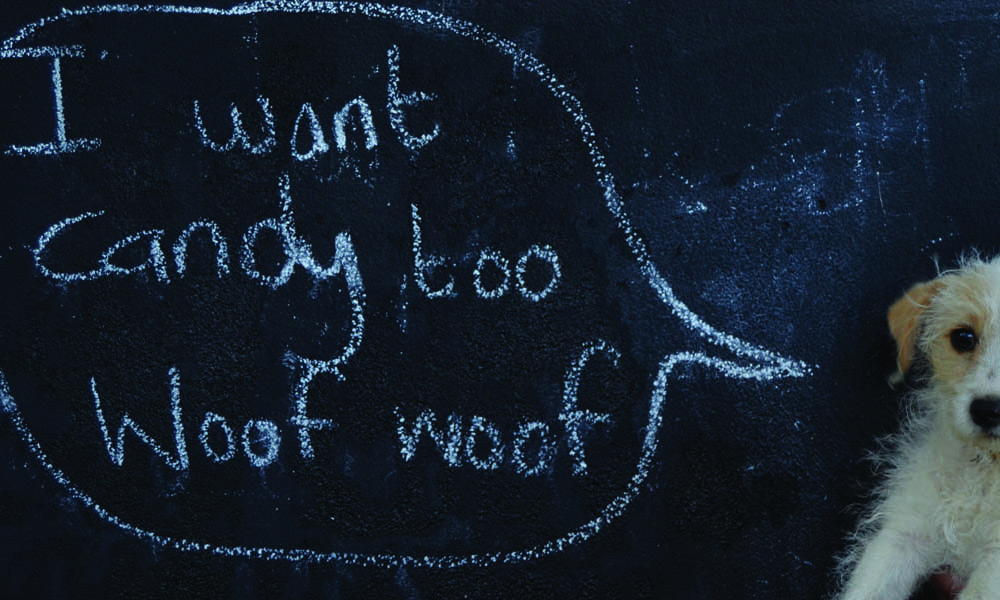 I want
candy too
Woof woof